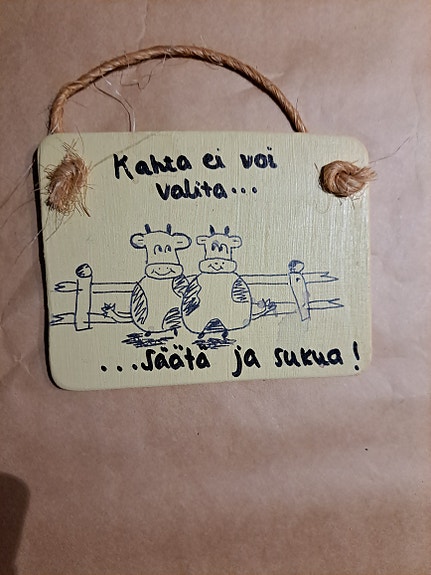 Kahta ei voi
valita...
...säätä ja sukua!